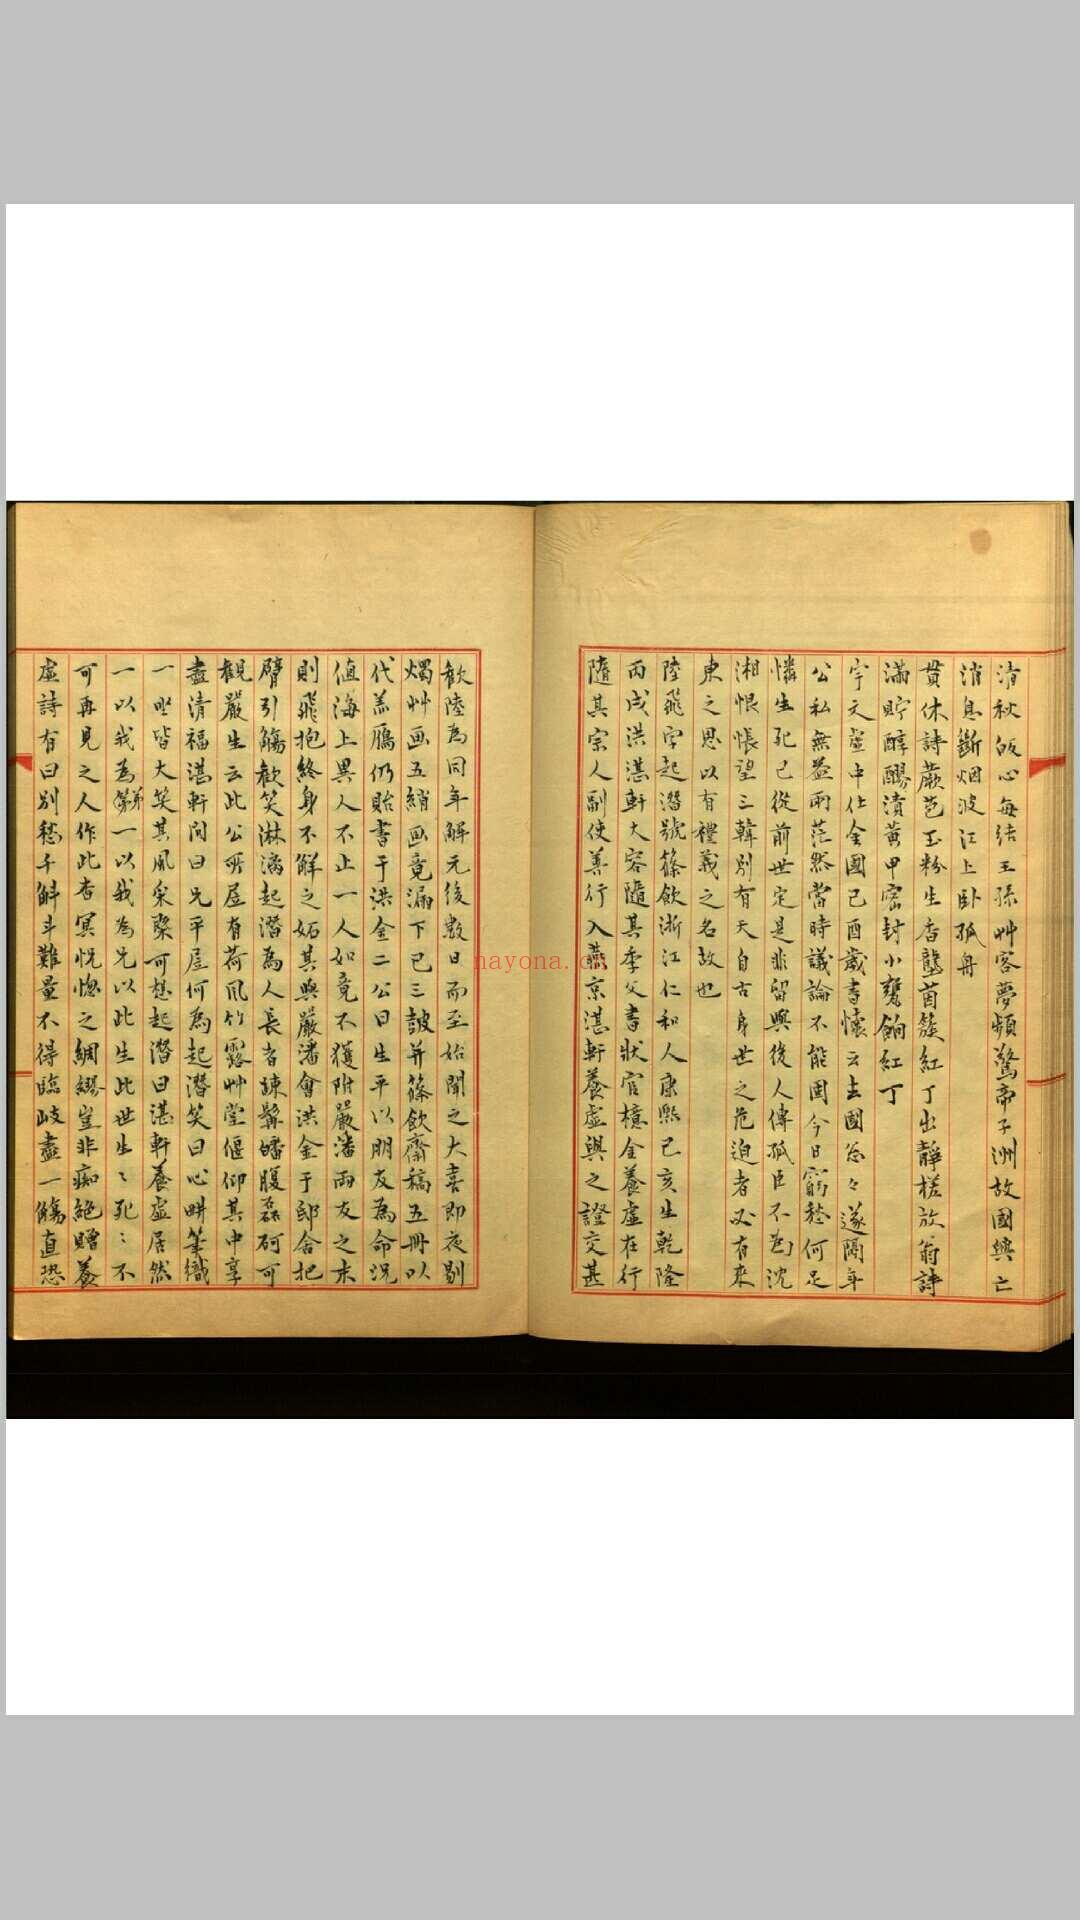 清秋皈心每結王孫艸客夢頻驚帝子洲故國興亡
消息斷烟波江上卧孤舟
貫休詩蕨苞玉粉生香壟菌簇紅丁出静槎放翁詩
滿貯醇醪漬黄甲密封小甕餉紅丁
宇文虛中仕金國己酉歲書懷云去國忩々遂隔年
公私無益兩茫然當時議論不能固今日窮愁何足
憐生死已從前世定是非留與後人傳孤臣不為沈
湘恨悵望三韓別有天自古身世之危迫者必有來
東之思以有禮義之名故也
陸飛字起潛號篠飲浙江仁和人康熙己亥生乾隆
丙戌洪湛軒大容隨其季父書狀官檍金養虛在行
隨其宗人副使善行入燕京湛軒養虛與之證交甚
歡陸為同年解元後數日而至始聞之大喜即夜剔
燭艸画五綃画竟漏下已三皷并篠飲齋稿五冊以
代羔鴈仍貽書于洪金二公曰生平以朋友為命况
值海上異人不止一人如竟不獲附嚴潘兩友之末
則飛抱終身不解之妬其與嚴潘會洪金于邸舍把
臂引觴歡笑淋漓起潛為人長者疎髯皤腹磊砢可
觀嚴生云此公所居有荷風竹露艸堂偃仰其中享
盡清福湛軒问曰兄平居何為起潛笑曰心畊筆織
一㘴皆大笑其風采槩可想起潛曰湛軒養虛居然
一以我為弟一以我為兄以此生此世生〻死〻不
可再見之人作此杳冥怳惚之綢繆豈非痴絶贈養
虛詩有曰別愁千斛斗難量不得臨歧盡一觴直恐
nayona.cn